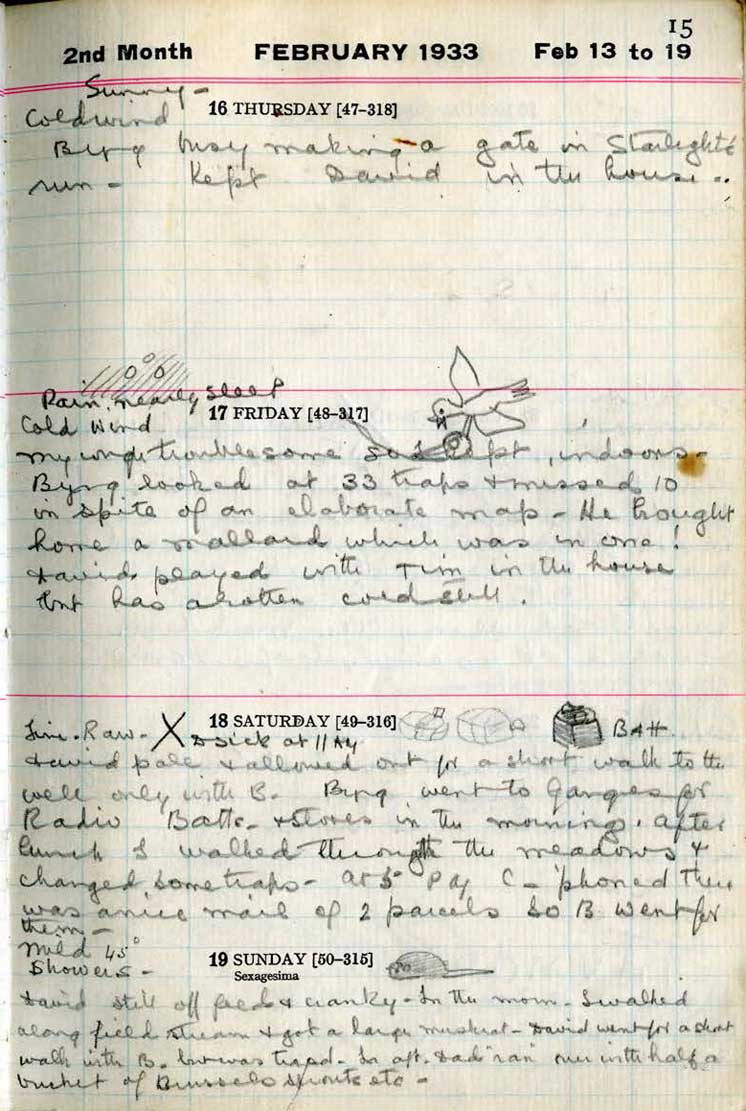 15
2nd Month FEBRUARY 1933 Feb 13 to 19
Sunny -
Cold wind 16 THURSDAY [47-318]
Byng busy making a gate in Starlight's
run - Kept David in the house -
Rain, nearly sleep
17 FRIDAY [48-317]
Cold Wind
my troublesome so I kept indoors -
Byng looked at 33 traps & missed 10
in spite of an elaborate map - He brought
home a mallard which was in one!
David played with Tim in the house
but has a rotten cold still.
Raw - X 18 SATURDAY [49-316] BATT.
D sick at 11 AM
David pale & allowed out for a short walk to the
well only with B. Byng went to Ganges for
Radio Batts. & stores in the morning. After
lunch I walked through the meadows &
changed some traps - at 5 P C - 'phoned there
was a nice mail of 2 parcels so B. went for
them -
Mild 45°
Showers - 19 SUNDAY [50-315]
Sexagesima
David still off feed & cranky - In the morn - I walked
along field stream & got a large muskrat - David went for a short
walk with B. but was tired - In aft. Dad "ran" over with half a
bucket of Brussels sprouts etc -